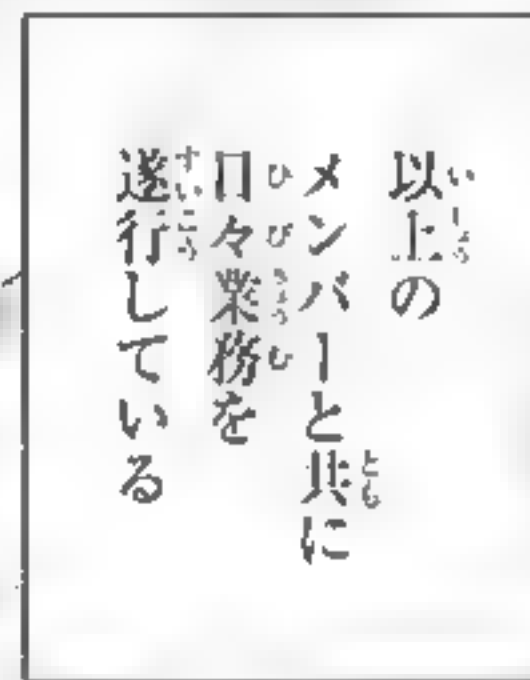 以上の
メンバーと共に
日々業務を
遂行している